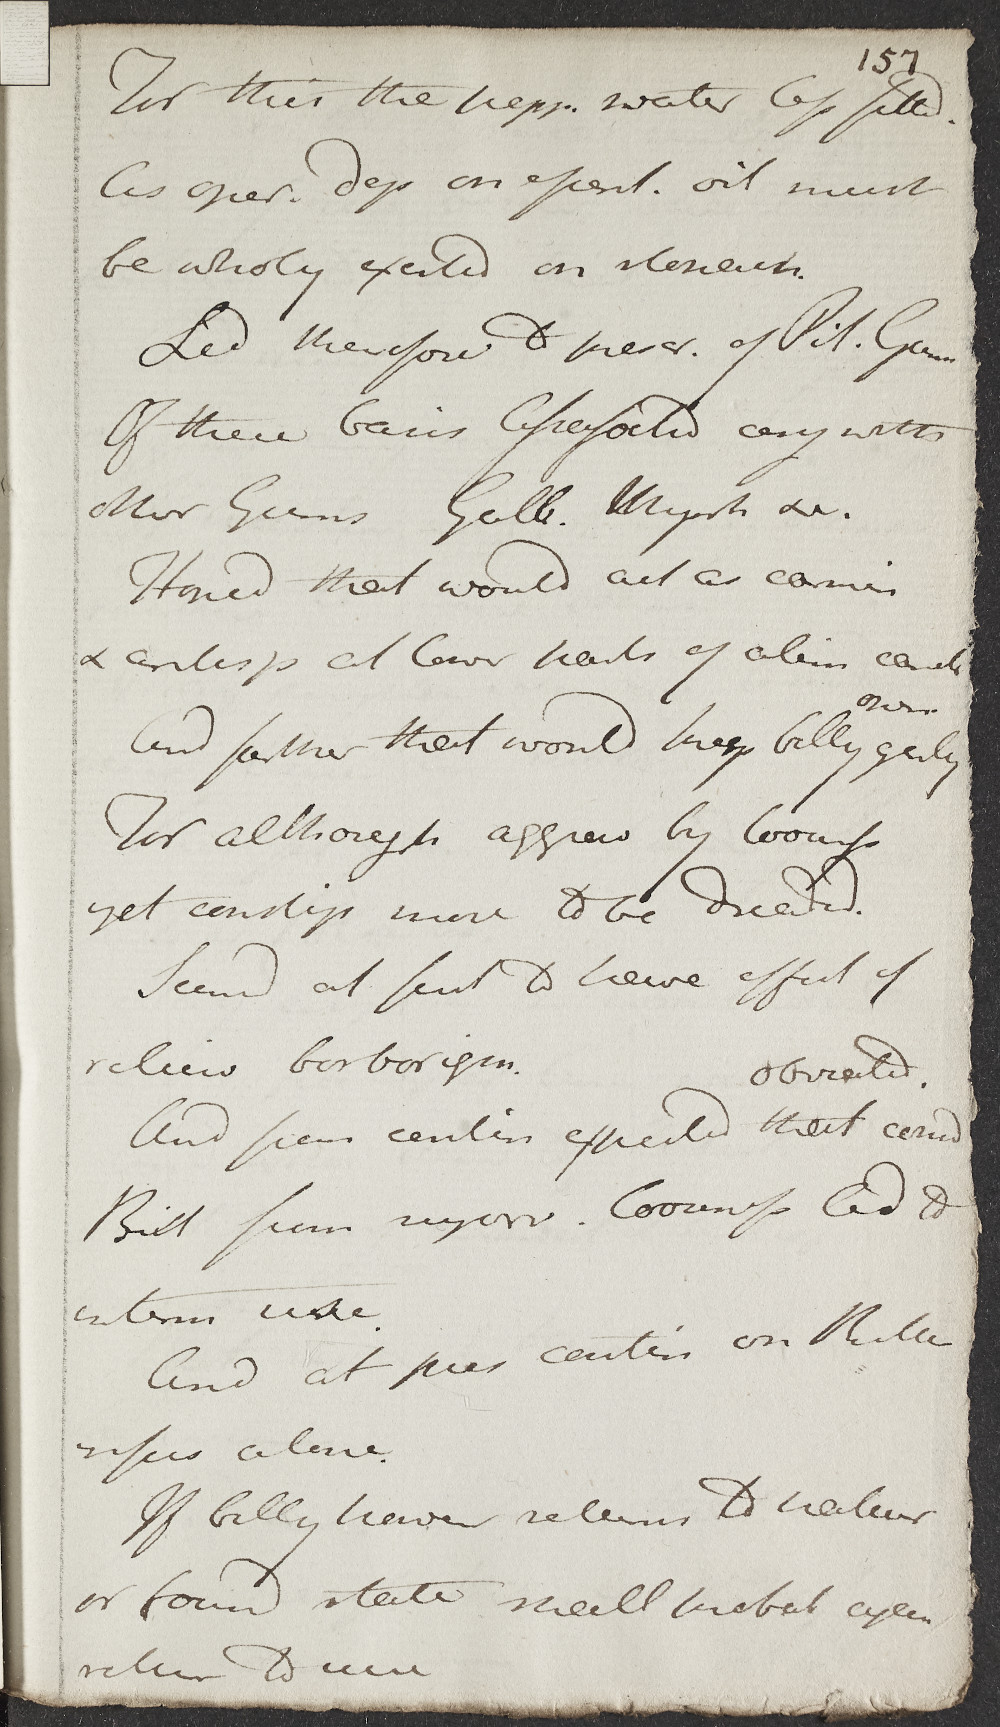 157
For this the pepp. water less fitted.
As oper. dep on essent. oil must
be wholy exerted on stomach.
Led therefore to prescr. of Pil. Gum
Of these basis assafoetid any with
other Gums Galb. Myrrh &c.
Hoped that would act as carmin
& antisp at lower parts of alim canal
And farther that would keep belly gently
open
For although aggrav by looseness
yet constip more to be dreaded.
Seemd at first to have effect of
reliev borborigm.
obviated.
And from contin expected that
But from looseness led to
interm use.
And at pres contin on
alone.
If belly however returns to natur
or bound state shall probab again
return to use